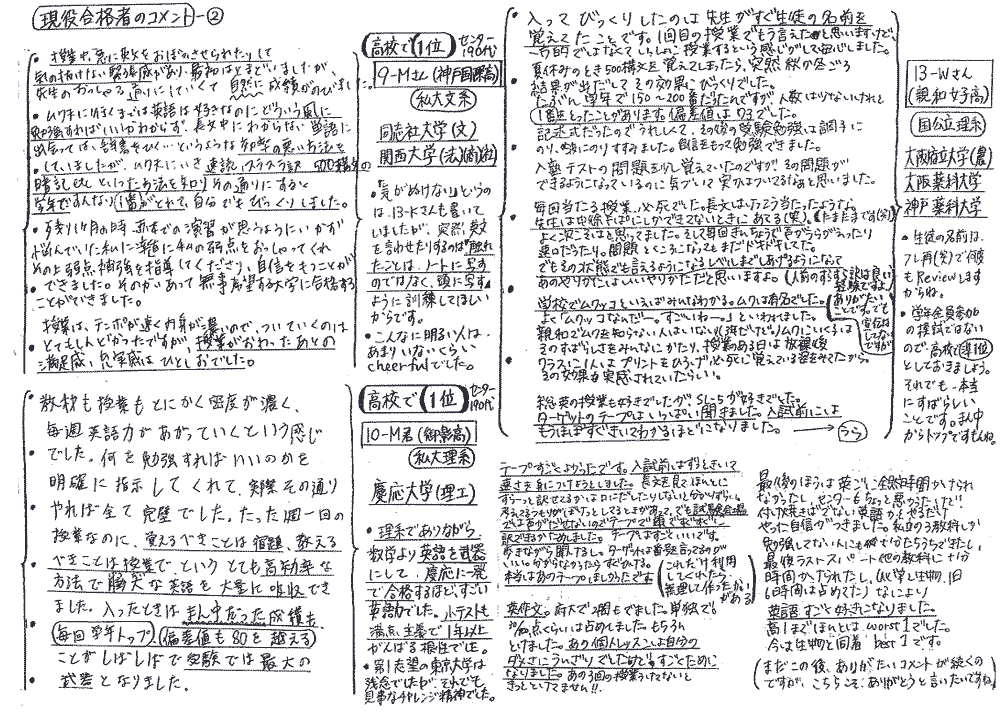 現役合格者のコメント-②
• 授業中、急に英文をおぼえさせられたりして
気の抜けない緊張感があり、最初はとまどいましたが、
先生のおっしゃる通りにしていくて自然に成績がのびました。
• ムクネに行くまでは英語は好きなのにどういう風に
勉強すればいいかわからず、長文中にわからない単語に
出会っては、辞書をひく…というような効率の悪い方法を
していましたが、ムクネにいき速読、スラスラ訳、500構文の
暗記 etc といった方法を知り、その通りにすると
学年ですんなり1番がとれて、自分でもびっくりしました。
• 残り1ヶ月の時、赤本での演習が思うようにいかず
悩んでいた私に先生は私の弱点をおっしゃってくれ
その弱点補強を指導してくださり、自信をもつことが
できました。そのかいあって無事希望する大学に合格する
ことができました。
• 授業は、テンポが速く内容が濃いので、ついていくのは
とてもしんどかったですが、授業がおわったあとの
満足感、充実感はひとしおでした。
高校で1位 センター190代
9-Mさん (神戸国際高)
私大文系
同志社大学(文)
関西大学(法)(商)(社)
• 「気がぬけない」というの
は、13-Kさんも書いて
いましたが、突然、英文
を言わせたりするのは「触れ
たことは、ノートに写す
のではなく、頭に写す」
ように訓練してほしい
からです。
• こんなに明るい人は、
あまりいないくらい
cheerfulでした。
教材も授業もとにかく密度が濃く、
毎週英語力があがっていくという感じ
でした。何を勉強すればいいのかを
明確に指示してくれて、実際その通り
やれば全て完璧でした。たった週一回の
授業なのに、覚えるべきことは宿題、教える
べきことは授業で、というとても高効率な
方法で膨大な英語を大量に吸収でき
ました。入ったときはまん中だった成績も、
毎回学年トップ、偏差値も80を越える
ことがしばしばで受験では最大の
武器となりました。
高校で1位 センター190代
10-M君 (御影高)
私大理系
慶応大学(理工)
• 理系でありながら、
数学より英語を武器
にして、慶応に一発
で合格するほど、すごい
英語力でした。小テストも
満点主義で1年以上
がんばる根性でした。
• 第1志望の東京大学は
残念でしたが、それでも
見事なチャレンジ精神でした。
• 入ってびっくりしたのは先生がすぐ生徒の名前を
覚えてたことです。1回目の授業でもう言えたと思いますけど、
授業するという感じがして安心しました。
• 夏休みのとき500構文を覚えてしまったら、突然秋か冬ごろ
結果が出だしてその効果にびっくりでした。
たぶん学年で150〜200番だったんですが、人数は少ないけれど
1番をとったことがあります。偏差値は73でした。
記述式だったのでうれしくて、その後の受験勉強は調子に
のり、楽にのりすすみました。自信をもって勉強できました。
• 入塾テストの問題を少し覚えていたのですが、その問題が
できるようになっているのに気がついて実力はついてるなあと思いました。
• 毎回当たる授業、必死でした。長文はふたつ当たったような。
先生は中途半ぱにしかできてないときにあてる(笑)。(たまたまです(笑))
よく次こそはと思ってました。そして毎回きんちょうで声がうらがえったり
早口だったり、問題とこたえになってもまだドキドキしてた。
でもその状態でも言えるようになるレベルにまであげるようになって
あのやり方だとほしいやり方だと思いますよ。(人前のすらすら訳は良い経験ですよ)
• 学校でムクッコといえばみんなわかる。ムクは有名でした。
よく「ムクッコなんだー。すごいねー。」といわれました。
親和でムクを知らない人はいない(浜だけど)ムクにいく子は
そのすばらしさをみんなにかたり、授業のある日は放課後
クラスに1人はプリントをひろげ、必死に覚えている姿をみてたから、
その効果を実感されていたらしい。
ありがたいことです。でも宣伝はしてないですが
• 総英の授業も好きでしたが、SL-5が好きでした。
ターゲットのテープはいっぱい聞きました。入試前には
もうほぼすぐきいてわかるほどになりました。→うら
13-Wさん
(親和女子高)
国公立理系
大阪府立大学(農)
大阪薬科大学
神戸薬科大学
• 生徒の名前は、
フレ再(笑)で何度
もReviewします
からね。
• 学年全員参加
の模試ではない
ので、高校で準1位
としておきましょう。
それでも、本当
にすばらしい
ことです。まん中
からトップですもんね。
テープすごくよかったです。入試前はずっときいて
速さを身につけようとしました。長文を見てほんとに
すらーっと訳せてるかは口にだしたりしないと分かりずらい。
考えてるつもりがぼーっとしてるとかがあって、でも試験会場
では声がだせないのでテープで頭ですばやく
訳でるかためしました。テープはすごくいいです。
あきながら聞けるし。ターゲットは番号言ってるのが
いい。分からなかったらすぐひける。
本当はあのテープほしかったです
これだけ利用してくれたら、無理して作ったかいがある
英作文。府大で2問もでました。単独で
30/100点くらいは占めてました。もちろん
とけました。あの個人レッスンは自分の
ダメさにうんざりでしたけど、すごくために
なりました。あの3回の授業うけてないと
きっととけてません!!
最後のほうは英ごに全然時間かけられ
なかったし、センター6ちょっと思ったけど!!
付け焼きばでない英語力がつくだけ
やった自信がつきました。私立のう教科しか
勉強してない人にも負けなかったらうでしたし、
最後ラストスパート他の教科に十分
時間かけられたし、(化学と生物、1日
6時間は占めてた) なにより
英語すごく好きになりました。
高1までほんとは worst 1でした。
今は生物と同着 best 1です。
(まだこの後、ありがたいコメントが続くの
ですが、こちらこそ、ありがとうと言いたいですね。)